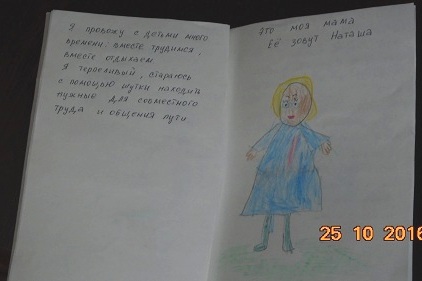 Я провожу с детьми много
времени: вместе трудимся,
вместе отдыхаем
Я терпеливый, стараюсь
с помощью шутки находить
нужный для совместного
труда и общения пути
Это моя мама
Её зовут Наташа
25 10 2016